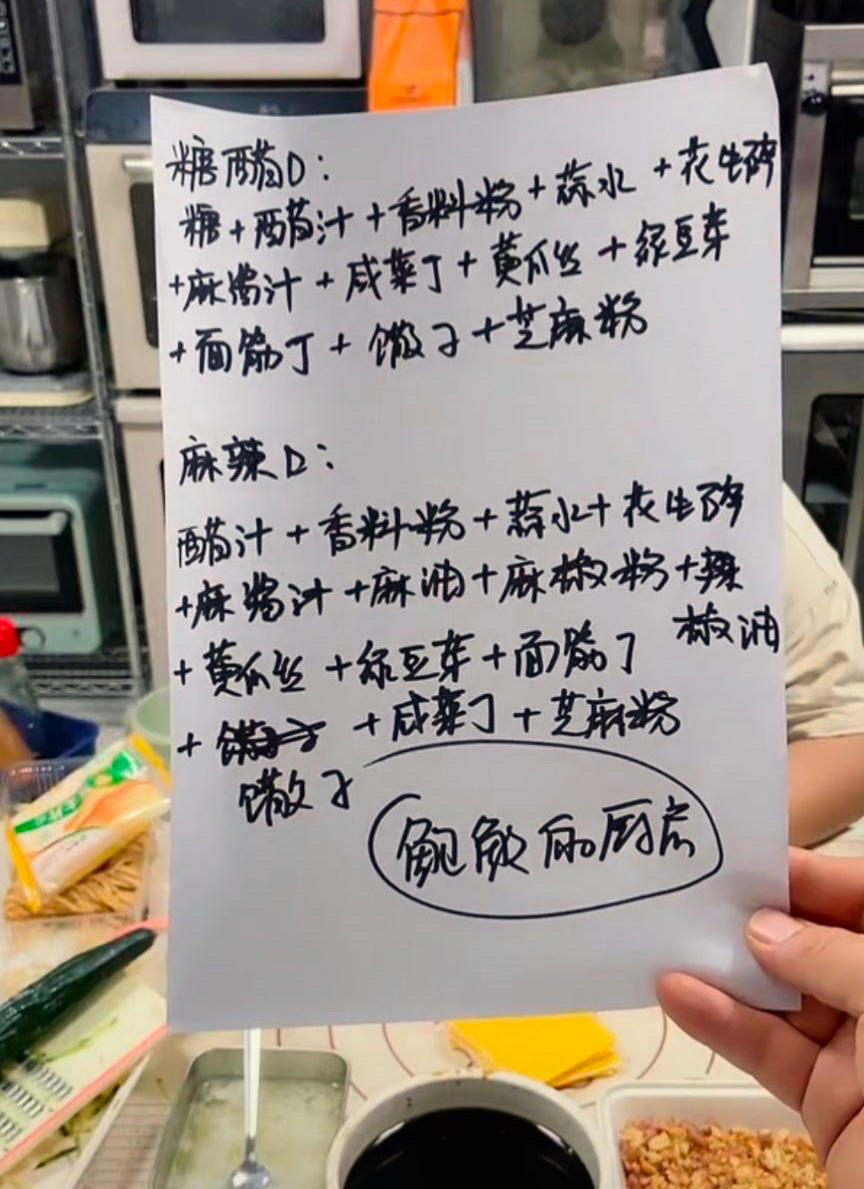 糖醋D:
糖+醋汁+香料粉+蒜水+花生碎
+麻酱汁+咸菜丁+黄瓜丝+绿豆芽
+面筋丁+馓子+芝麻粉
麻辣D:
醋汁+香料粉+蒜水+花生碎
+麻酱汁+麻油+麻椒粉+辣
椒油
+黄瓜丝+绿豆芽+面筋丁
+ +咸菜丁+芝麻粉
馓子
的厨房